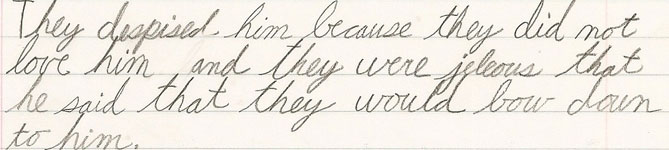 They despised him because they did not
love him and they were jeleous that
he said that they would bow down
to him.